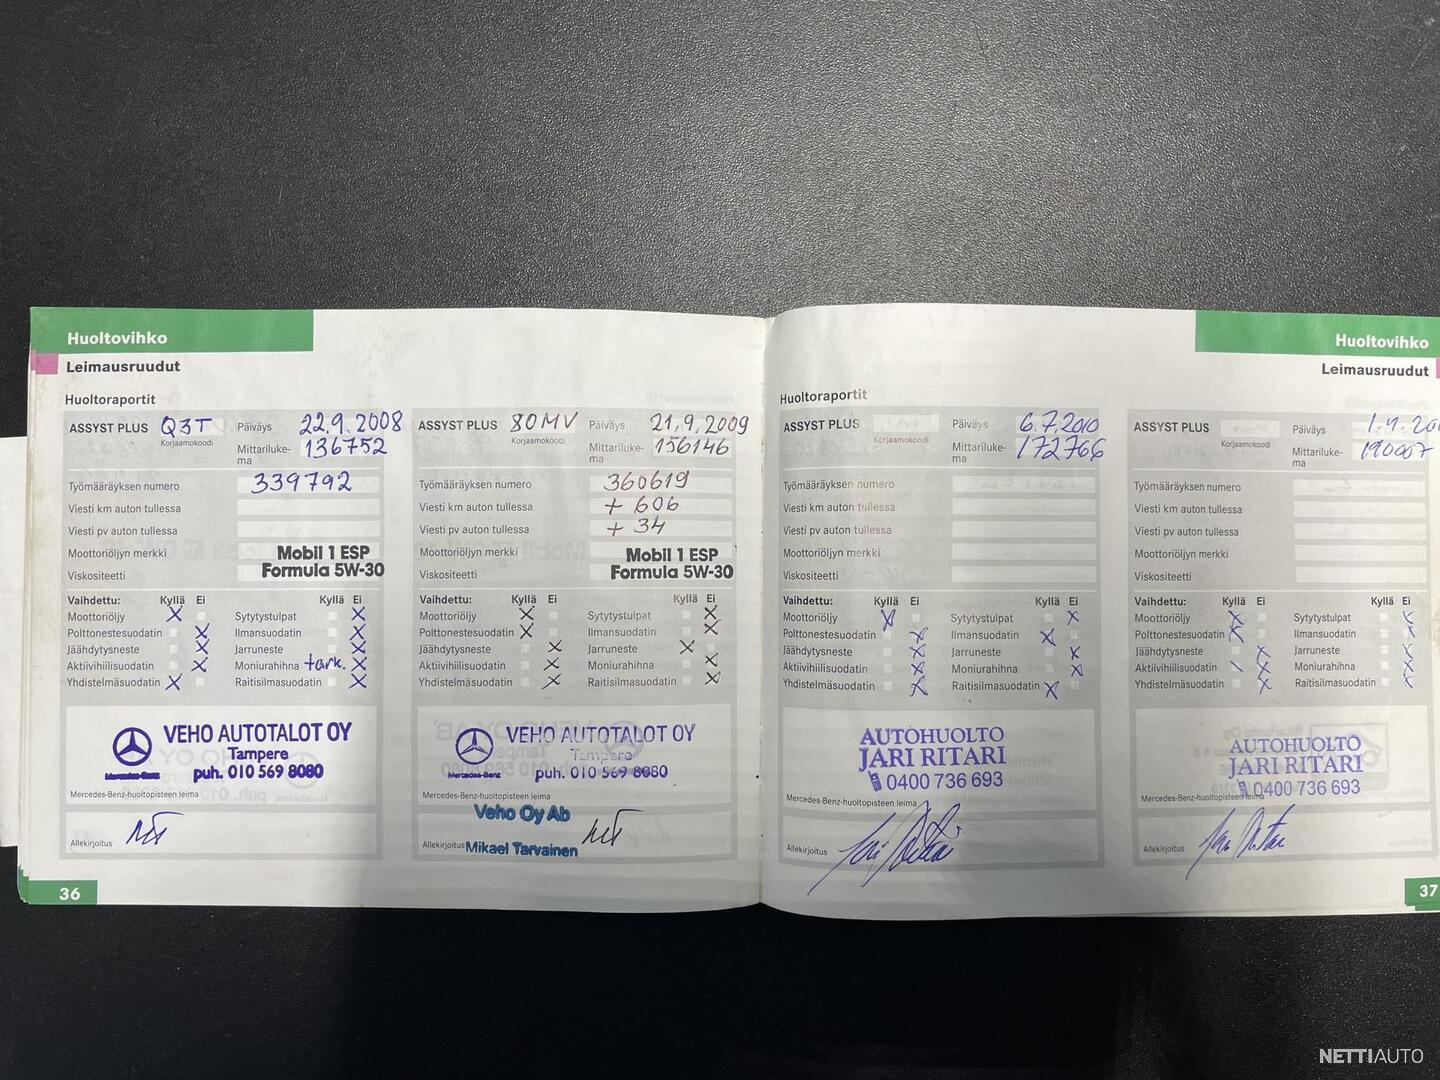 Huoltovihko
Leimausruudut
Huoltoraportit
ASSYST PLUS Q3T
Korjaamokoodi
Päiväys 22.9.2008
Mittariluke-
ma 136752
Työmääräyksen numero 339792
Viesti km auton tullessa
Viesti pv auton tullessa
Moottoriöljyn merkki Mobil 1 ESP
Viskositeetti Formula 5W-30
Vaihdettu: Kyllä Ei Kyllä Ei
Moottoriöljy X Sytytystulpat X
Polttonestesuodatin X Ilmansuodatin X
Jäähdytysneste X Jarruneste X
Aktiivihiilisuodatin X Moniurahihna tark. X
Yhdistelmäsuodatin X Raitisilmasuodatin X
VEHO AUTOTALOT OY
Tampere
Mercedes-Benz
puh. 010 569 8080
Mercedes-Benz-huoltopisteen leima
Allekirjoitus
36
ASSYST PLUS 80MV
Korjaamokoodi
Päiväys 21.9.2009
Mittariluke-
ma 156146
Työmääräyksen numero 360619
Viesti km auton tullessa + 606
Viesti pv auton tullessa + 34
Moottoriöljyn merkki Mobil 1 ESP
Viskositeetti Formula 5W-30
Vaihdettu: Kyllä Ei Kyllä Ei
Moottoriöljy X Sytytystulpat X
Polttonestesuodatin X Ilmansuodatin X
Jäähdytysneste X Jarruneste X
Aktiivihiilisuodatin X Moniurahihna X
Yhdistelmäsuodatin X Raitisilmasuodatin X
VEHO AUTOTALOT OY
Tampere
Mercedes-Benz
puh. 010 569 8080
Mercedes-Benz-huoltopisteen leima
Veho Oy Ab
Allekirjoitus Mikael Tarvainen
Huoltovihko
Leimausruudut
Huoltoraportit
ASSYST PLUS
Korjaamokoodi
Päiväys 6.7.2010
Mittariluke-
ma 172766
Työmääräyksen numero
Viesti km auton tullessa
Viesti pv auton tullessa
Moottoriöljyn merkki
Viskositeetti
Vaihdettu: Kyllä Ei Kyllä Ei
Moottoriöljy X Sytytystulpat X
Polttonestesuodatin X Ilmansuodatin X
Jäähdytysneste X Jarruneste X
Aktiivihiilisuodatin X Moniurahihna X
Yhdistelmäsuodatin X Raitisilmasuodatin X
AUTOHUOLTO
JARI RITARI
0400 736 693
Mercedes-Benz-huoltopisteen leima
Allekirjoitus Jari Ritari
ASSYST PLUS
Korjaamokoodi
Päiväys
Mittariluke-
ma 190007
Työmääräyksen numero
Viesti km auton tullessa
Viesti pv auton tullessa
Moottoriöljyn merkki
Viskositeetti
Vaihdettu: Kyllä Ei Kyllä Ei
Moottoriöljy X Sytytystulpat X
Polttonestesuodatin X Ilmansuodatin X
Jäähdytysneste X Jarruneste X
Aktiivihiilisuodatin X Moniurahihna X
Yhdistelmäsuodatin X Raitisilmasuodatin X
AUTOHUOLTO
JARI RITARI
0400 736 693
Mercedes-Benz-huoltopisteen leima
Allekirjoitus Jari Ritari
37
NETTIAUTO